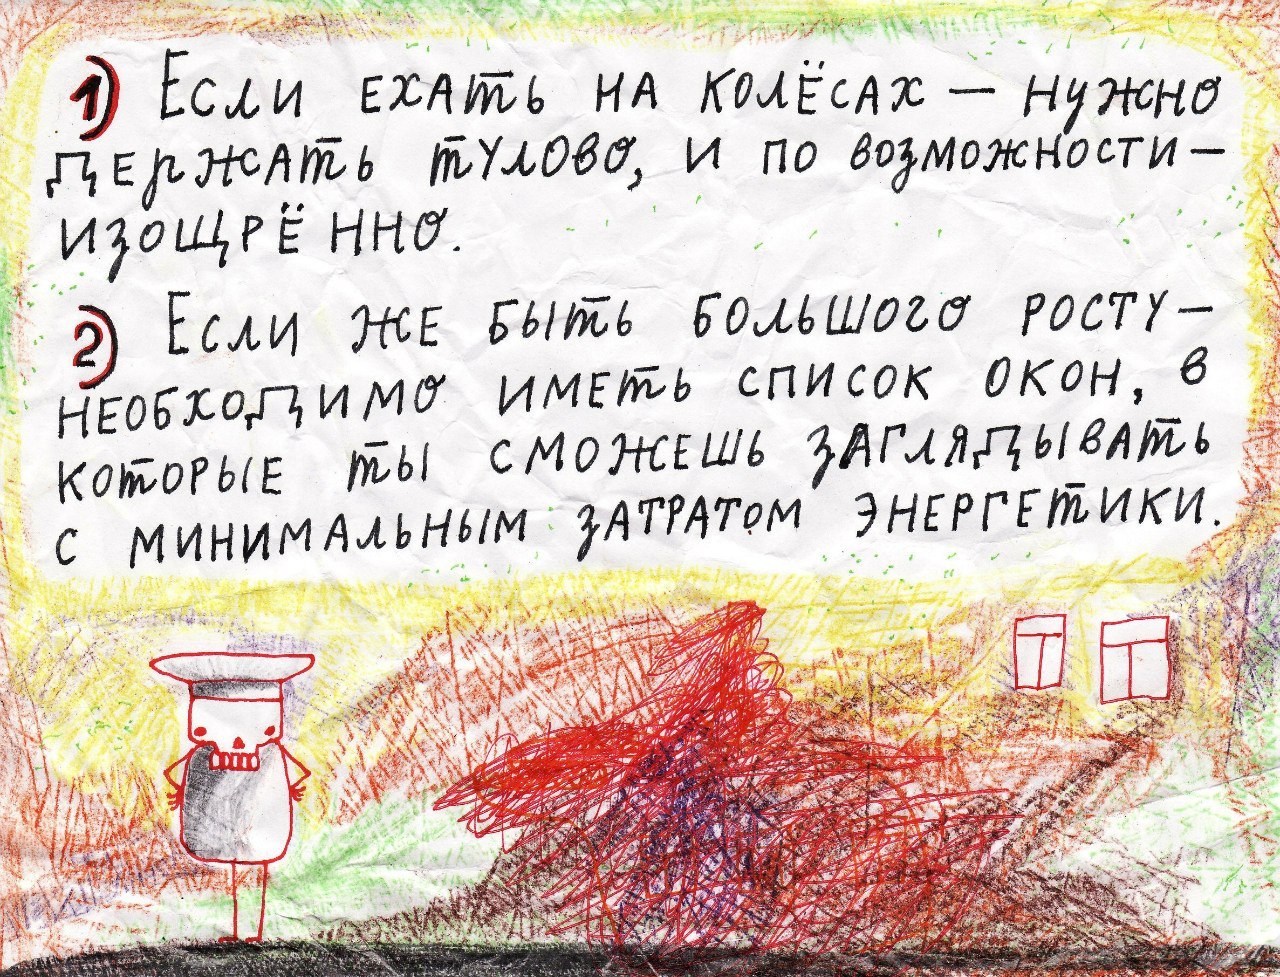 1) Если ехать на колёсах — нужно
держать тулово, и по возможности —
изощрённо.
2) Если же быть большого росту —
необходимо иметь список окон, в
которые ты сможешь заглядывать
с минимальным затратом энергетики.